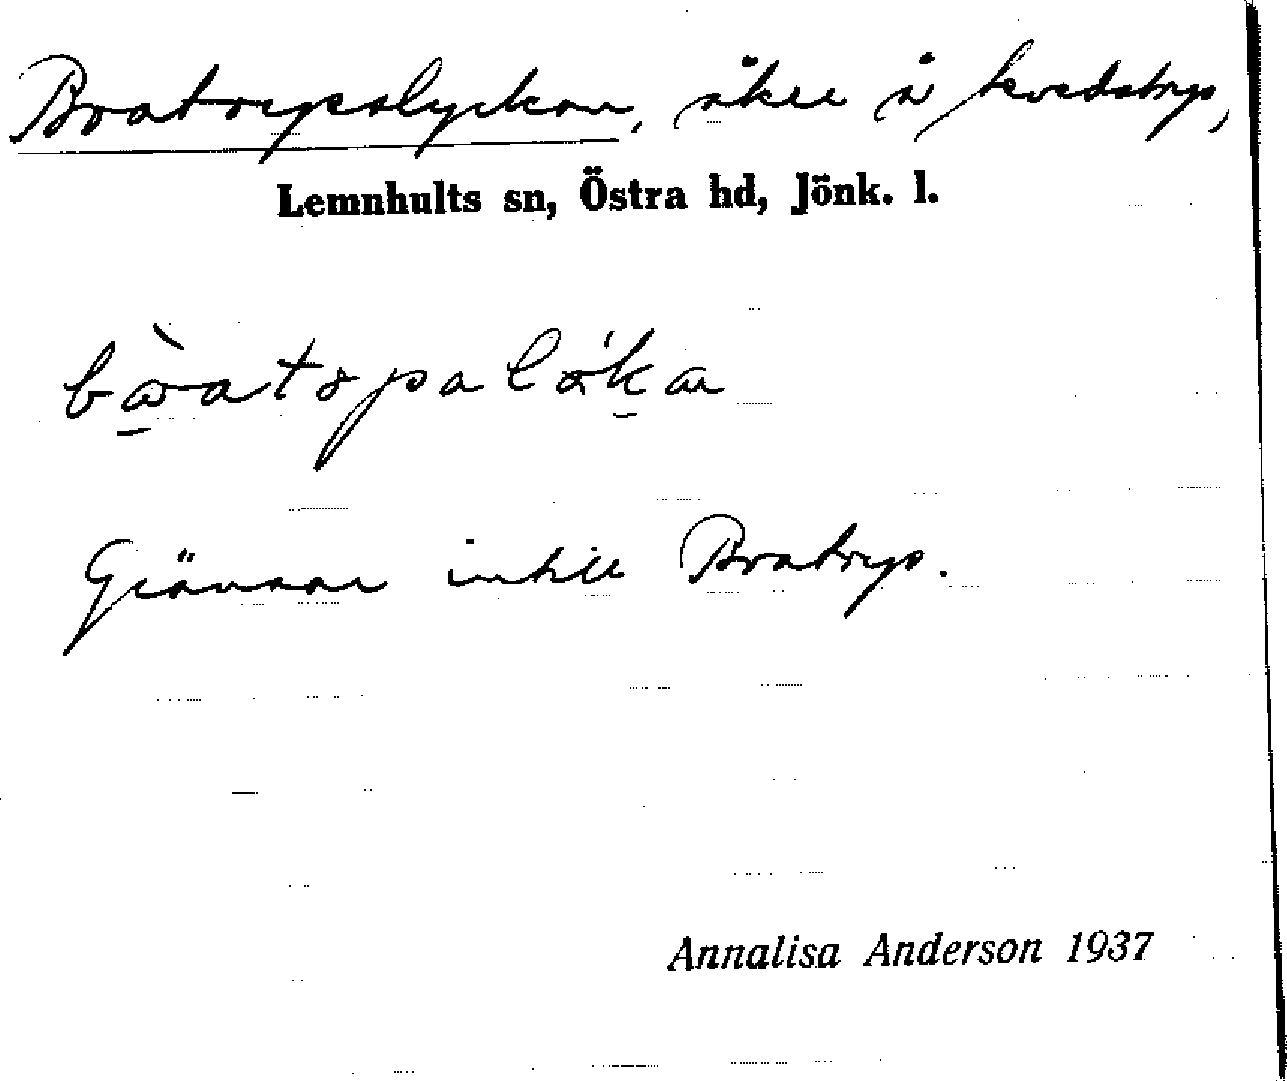 Bratorpslyckan, åker å Kvedstorp,
Lemnhults sn, Östra hd, Jönk. l.
Gränsar intill Bratorp.
Annalisa Anderson 1937